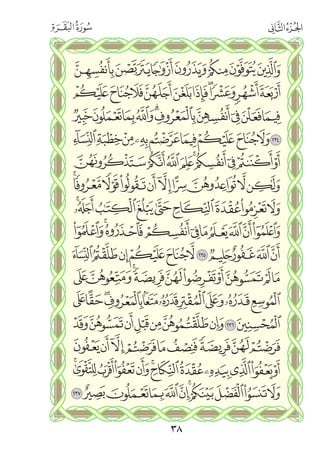 الجُزْءُ الثَّانِي
سُورَةُ البَقَرَةِ
وَٱلَّذِينَ يُتَوَفَّوْنَ مِنكُمْ وَيَذَرُونَ أَزْوَٰجًا يَتَرَبَّصْنَ بِأَنفُسِهِنَّ
أَرْبَعَةَ أَشْهُرٍ وَعَشْرًا ۖ فَإِذَا بَلَغْنَ أَجَلَهُنَّ فَلَا جُنَاحَ عَلَيْكُمْ
فِيمَا فَعَلْنَ فِىٓ أَنفُسِهِنَّ بِٱلْمَعْرُوفِ ۗ وَٱللَّهُ بِمَا تَعْمَلُونَ خَبِيرٌ
٢٣٤ وَلَا جُنَاحَ عَلَيْكُمْ فِيمَا عَرَّضْتُم بِهِۦ مِنْ خِطْبَةِ ٱلنِّسَآءِ
أَوْ أَكْنَنتُمْ فِىٓ أَنفُسِكُمْ ۚ عَلِمَ ٱللَّهُ أَنَّكُمْ سَتَذْكُرُونَهُنَّ
وَلَٰكِن لَّا تُوَاعِدُوهُنَّ سِرًّا إِلَّآ أَن تَقُولُوا۟ قَوْلًا مَّعْرُوفًا ۚ
وَلَا تَعْزِمُوا۟ عُقْدَةَ ٱلنِّكَاحِ حَتَّىٰ يَبْلُغَ ٱلْكِتَٰبُ أَجَلَهُۥ ۚ
وَٱعْلَمُوٓا۟ أَنَّ ٱللَّهَ يَعْلَمُ مَا فِىٓ أَنفُسِكُمْ فَٱحْذَرُوهُ ۚ وَٱعْلَمُوٓا۟
أَنَّ ٱللَّهَ غَفُورٌ حَلِيمٌ ٢٣٥ لَّا جُنَاحَ عَلَيْكُمْ إِن طَلَّقْتُمُ ٱلنِّسَآءَ
مَا لَمْ تَمَسُّوهُنَّ أَوْ تَفْرِضُوا۟ لَهُنَّ فَرِيضَةً ۚ وَمَتِّعُوهُنَّ عَلَى
ٱلْمُوسِعِ قَدَرُهُۥ وَعَلَى ٱلْمُقْتِرِ قَدَرُهُۥ مَتَٰعًۢا بِٱلْمَعْرُوفِ ۖ حَقًّا عَلَى
ٱلْمُحْسِنِينَ ٢٣٦ وَإِن طَلَّقْتُمُوهُنَّ مِن قَبْلِ أَن تَمَسُّوهُنَّ وَقَدْ
فَرَضْتُمْ لَهُنَّ فَرِيضَةً فَنِصْفُ مَا فَرَضْتُمْ إِلَّآ أَن يَعْفُونَ
أَوْ يَعْفُوَا۟ ٱلَّذِى بِيَدِهِۦ عُقْدَةُ ٱلنِّكَاحِ ۚ وَأَن تَعْفُوٓا۟ أَقْرَبُ لِلتَّقْوَىٰ ۚ
وَلَا تَنسَوُا۟ ٱلْفَضْلَ بَيْنَكُمْ ۚ إِنَّ ٱللَّهَ بِمَا تَعْمَلُونَ بَصِيرٌ ٢٣٧
٣٨